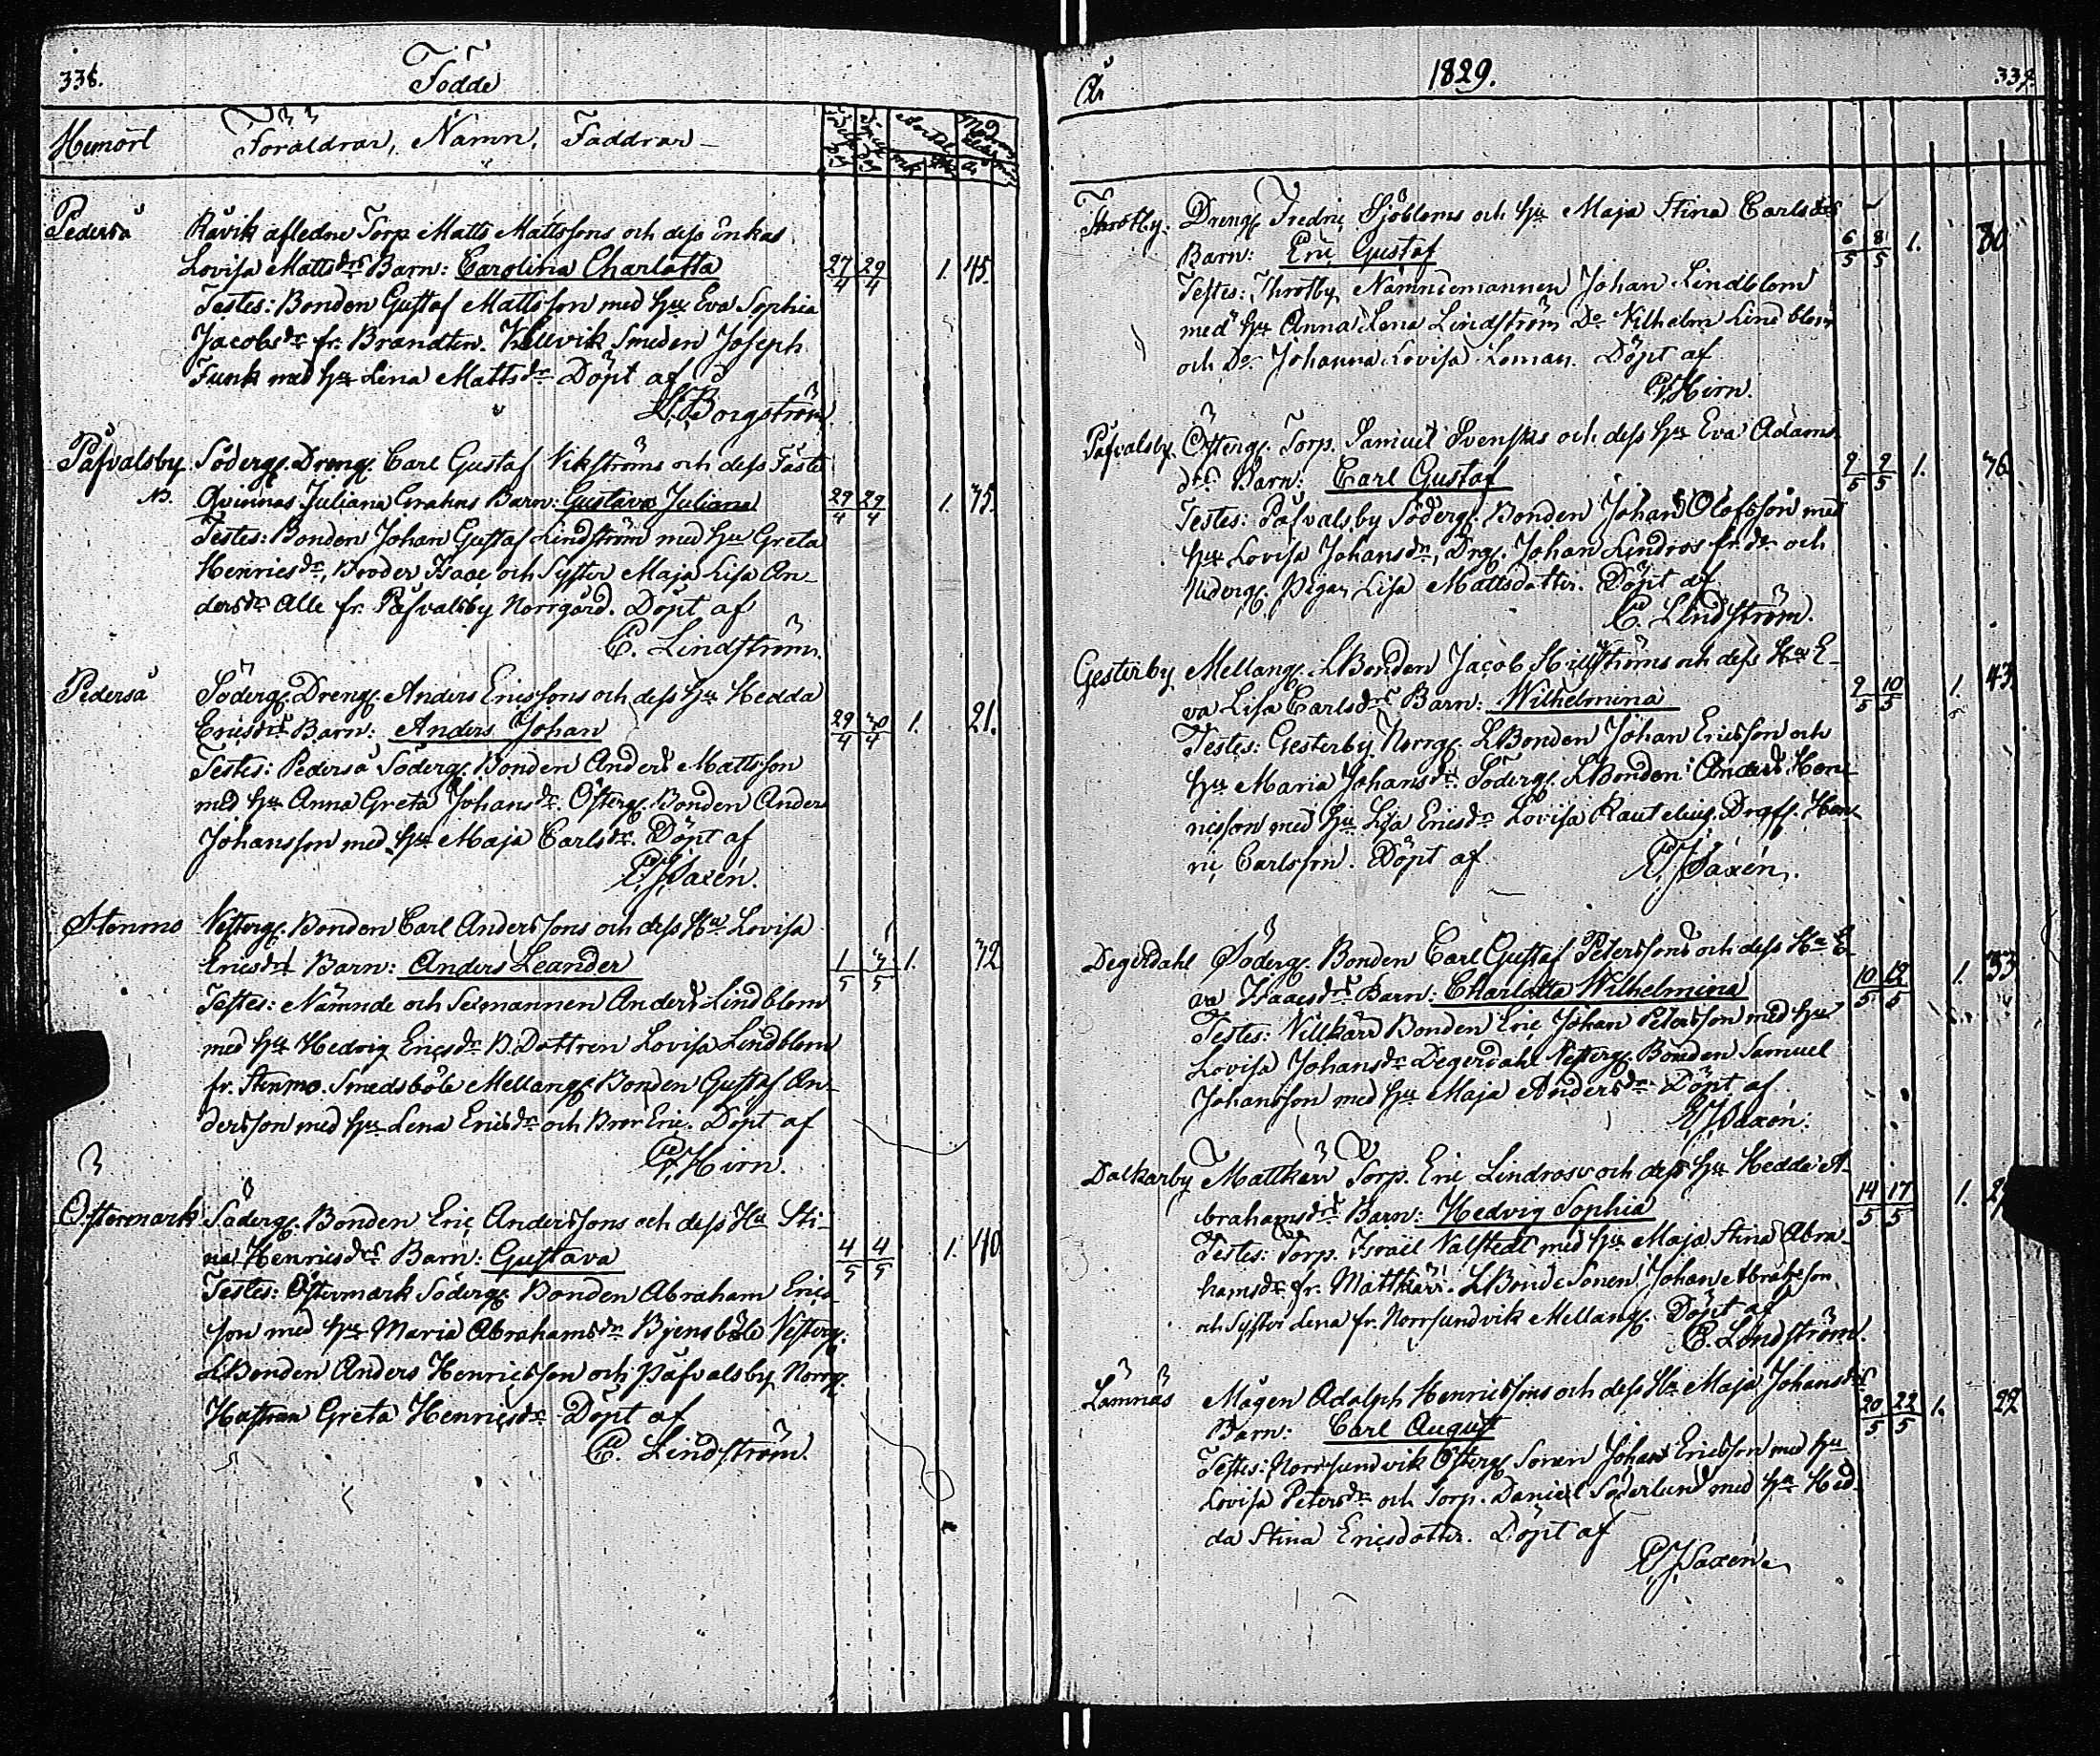 336.
Födde
Hemort
Föräldrar, Namn, Faddrar
Pederså
Råvik afledne Torp. Matts Mattssons och dess Enkas
Lovisa Mattsdrs Barn: Carolina Charlotta
27/4 29/4 1. 45.
Testes: Bonden Gustaf Mattsson med Hu Eva Sophia
Jacobsdr fr. Brandten. Kellvik Smeden Joseph
Funk med Hu Lena Mattsdr Döpt af
Borgström
Påfvalsby
Söderg. Dreng. Carl Gustaf Vikströms och dess Fäste
NB.
Qvinnas Juliana Grahns Barn: Gustava Juliana
29/4 29/4 1. 35.
Testes: Bonden Johan Gustaf Lindström med Hu Greta
Henricsdr, Broder Isaac och Syster Maja Lisa An-
dersdr Alle fr. Påfvalsby Norrgård. Döpt af
C. Lindström.
Pederså
Söderg. Dreng. Anders Ericssons och dess Hu Hedda
Ericsdrs Barn: Anders Johan
29/4 30/4 1. 21.
Testes: Pederså Söderg. Bonden Anders Mattsson
med Hu Anna Greta Johansdr. Österg. Bonden Anders
Johansson med Hu Maja Carlsdr. Döpt af
Saxén.
Stenmo
Vesterg. Bonden Carl Anderssons och dess Hu Lovisa
Ericsdrs Barn: Anders Leander
1/5 3/5 1. 32
Testes: Nämnde och Sexmannen Anders Lindblom
med Hu Hedvig Ericsdr B. Dottren Lovisa Lindblom
fr. Stenmo. Smedsböle Mellang. Bonden Gustaf An-
dersson med Hu Lena Ericsdr och Bror Eric. Döpt af
Hirn.
Östermark
Söderg. Bonden Eric Anderssons och dess Hu Sti-
na Henricsdrs Barn: Gustava
4/5 4/5 1. 40.
Testes: Östermark Söderg. Bonden Abraham Erics-
son med Hu Maria Abrahamsdr Bjensböle Vesterg.
LBonden Anders Henricsson och Påfvalsby Norrg.
Hustrun Greta Henricsdr Döpt af
C. Lindström.
År
1829.
337.
Throtby.
Dreng. Fredric Sjöbloms och Hu Maja Stina Carlsdrs
Barn: Eric Gustaf
6/5 8/5 1. 30
Testes: Throtby Nämndemannen Johan Lindblom
med Hu Anna Lena Lindström Do Vilhelm Lindblom
och Do Johanna Lovisa Loman. Döpt af
Hirn.
Påfvalsby.
Österg. Torp. Samuel Svenskas och dess Hu Eva Adams-
drs Barn: Carl Gustaf
9/5 9/5 1. 36
Testes: Påfvalsby Söderg. Bonden Johan Olofsson med
Hu Lovisa Johansdr, Drg. Johan Lindros fr. do och
Nederg. Pigan Lisa Mattsdotter. Döpt af
C. Lindström.
Gesterby
Mellang. LBonden Jacob Hillströms och dess Hu E-
va Lisa Carlsdrs Barn: Wilhelmina
9/5 10/5 1. 43
Testes: Gesterby Norrg. LBonden Johan Ericsson och
Hu Maria Johansdr Söderg. LBonden Anders Hen-
ricsson med Hu Lisa Ericsdr Lovisa Rautelius, Hen-
ric Carlsson. Döpt af
Saxén.
Degerdahl
Söderg. Bonden Carl Gustaf Peterssons och dess Hu E-
va Isaacsdrs Barn: Charlotta Wilhelmina
10/5 12/5 1. 33
Testes: Villkärr Bonden Eric Johan Petersson med Hu
Lovisa Johansdr Degerdahl Vesterg. Bonden Samuel
Johansson med Hu Maja Andersdr Döpt af
Saxén.
Dalkarby
Mattkärr Torp. Eric Lindroos och dess Hu Hedda A-
brahamsdrs Barn: Hedvig Sophia
14/5 17/5 1.
Testes: Torp. Israel Valstedt med Hu Maja Stina Abra-
hamsdr fr. Mattkärr. LBonde Sonen Johan Abrahsson
och Syster Lena fr. Norrsundvik Mellang. Döpt af
C. Lindström.
Lämnäs
Mågen Adolph Henricssons och dess Hu Maja Johansdrs
Barn: Carl August
20/5 22/5 1. 22
Testes: Norrsundvik Österg. Sonen Johan Ericsson med Hu
Lovisa Petersdr och Torp. Daniel Söderlund med Hu Hed-
da Stina Ericsdotter. Döpt af
Saxén.